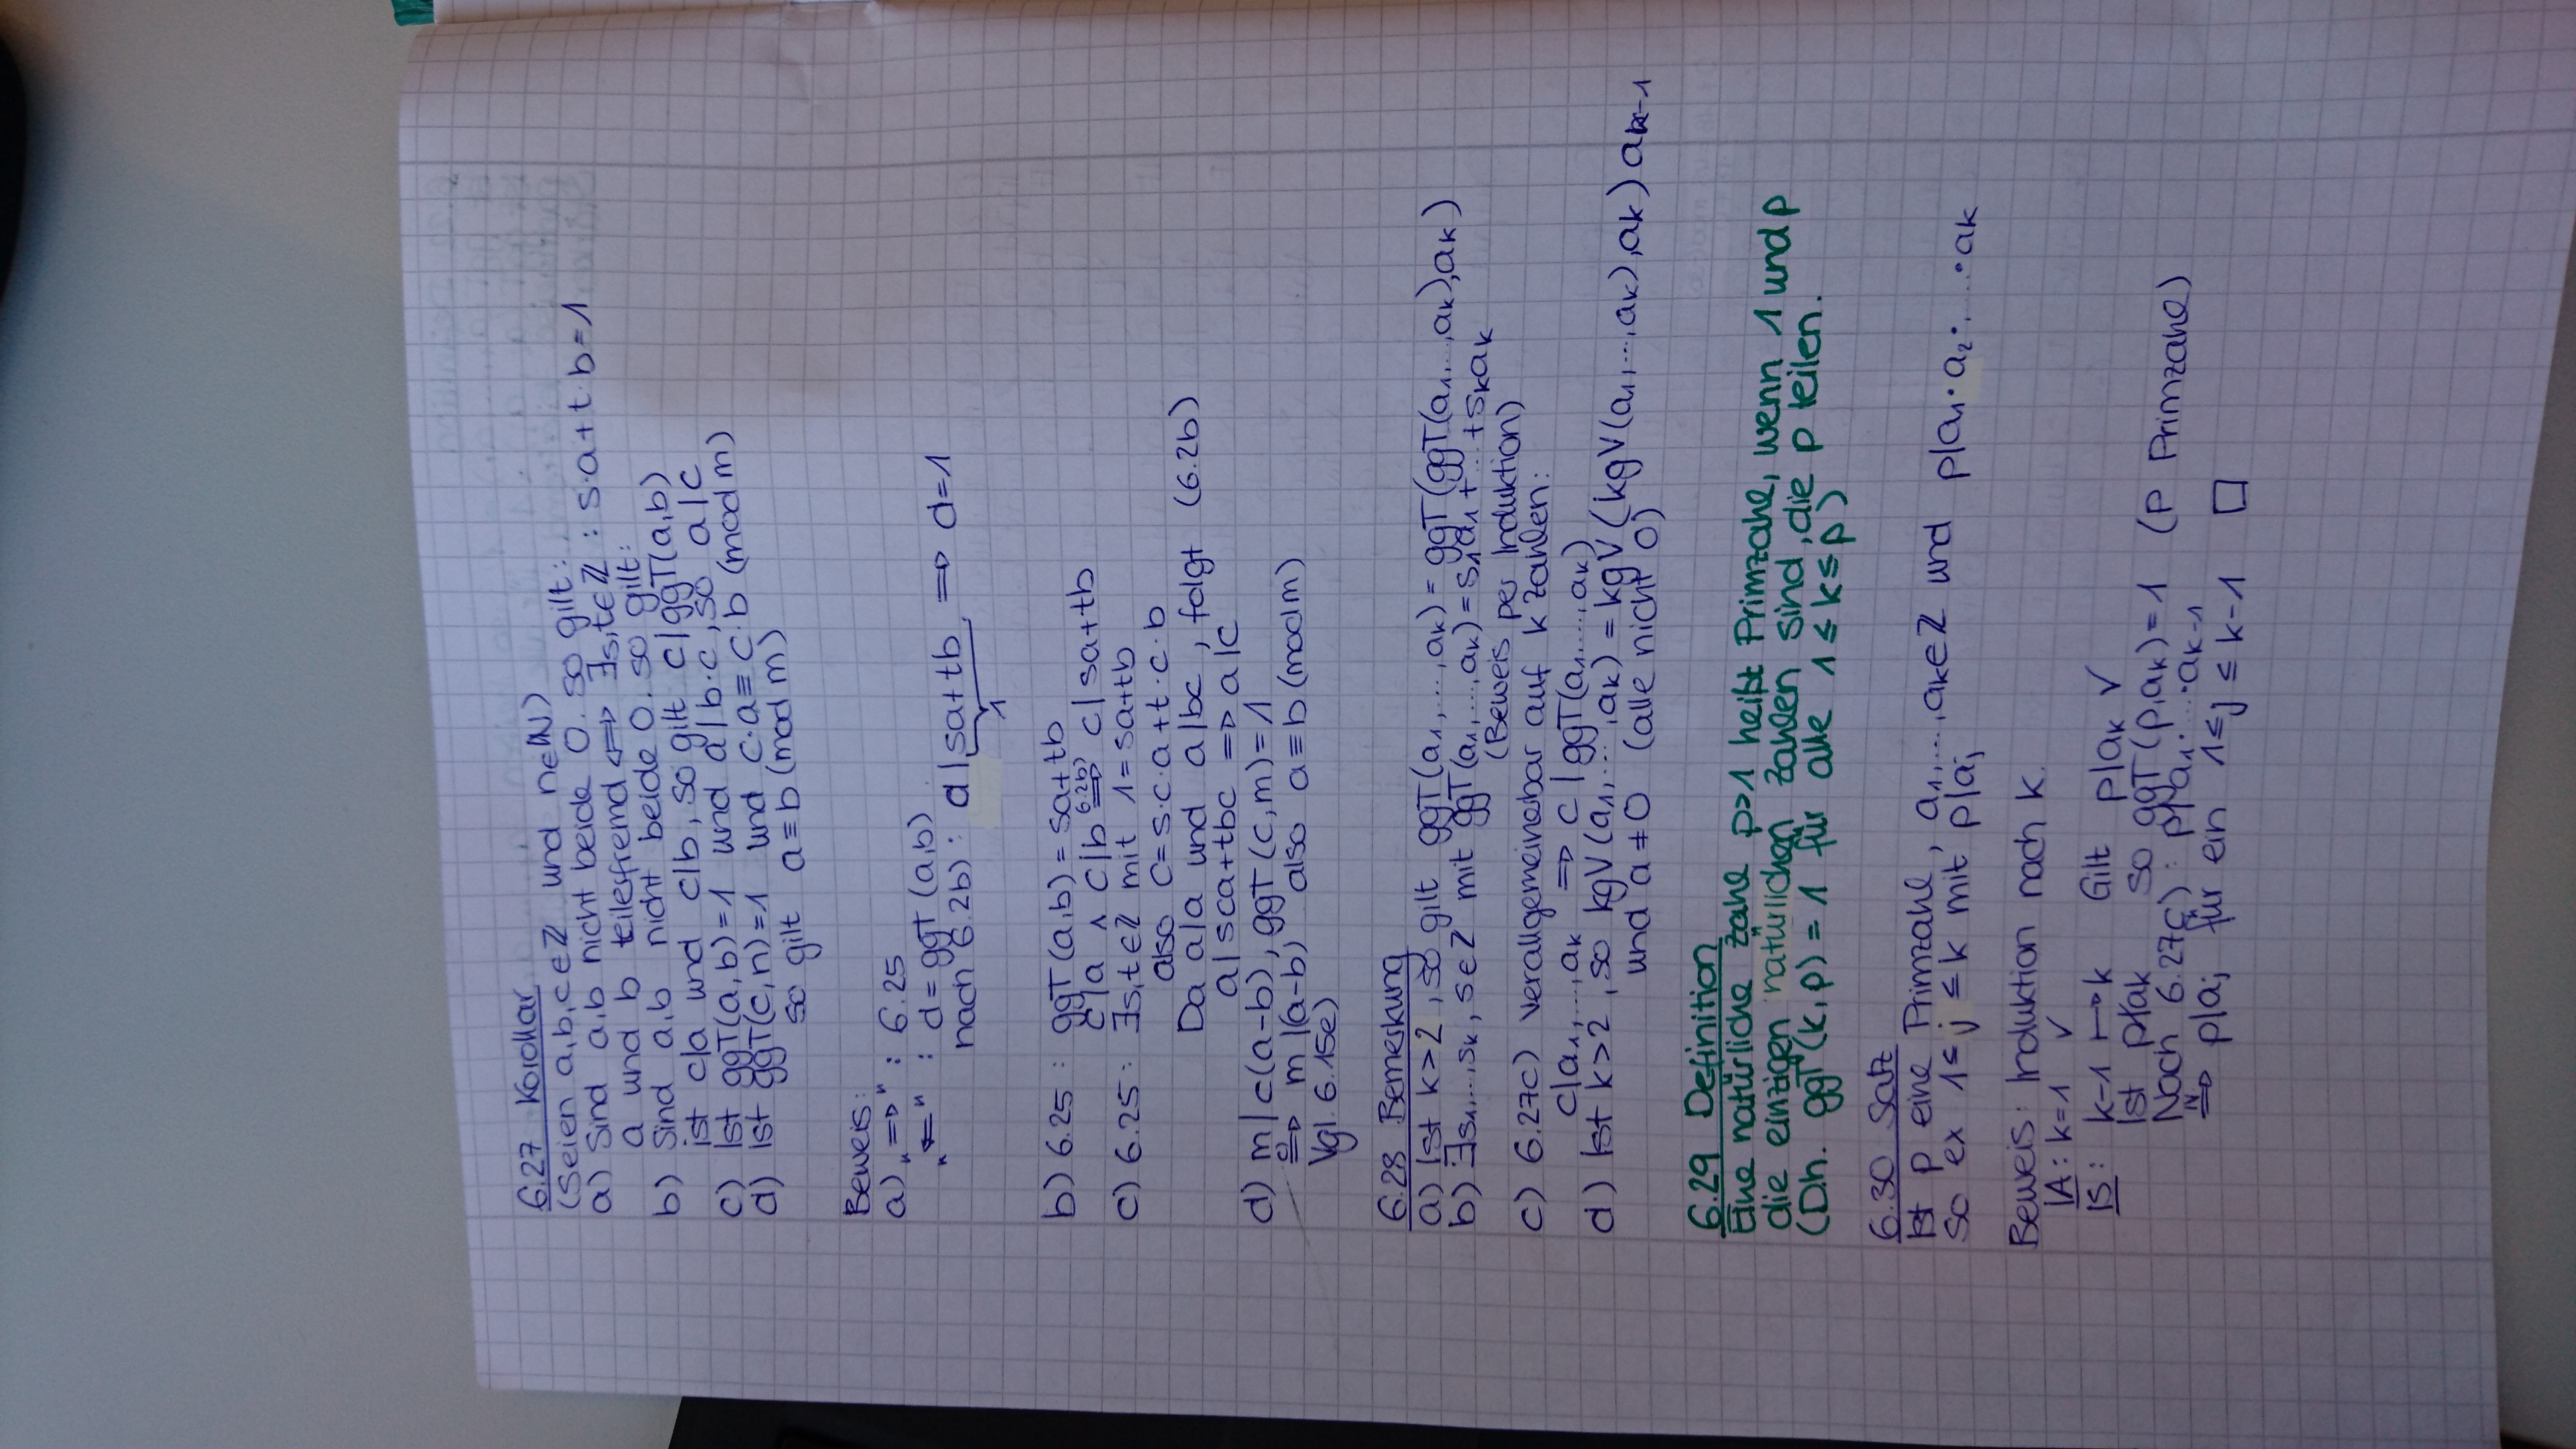 6.27 Korollar
(Seien a,b,c∈ℤ und n∈ℕ)
a) Sind a,b nicht beide 0. so gilt:
a und b teilerfremd ⟺ ∃s,t∈ℤ : s·a+t·b=1
b) Sind a,b nicht beide 0. so gilt:
ist c|a und c|b, so gilt c|ggT(a,b)
c) Ist ggT(a,b)=1 und a|b·c, so a|c
d) ist ggT(c,n)=1 und c·a≡c·b (mod m)
so gilt a≡b (mod m)
Beweis:
a) „⇒" : 6.25
„⇐" : d=ggT(a,b)
nach 6.2b) : d|sa+tb ⇒ d=1
1
b) 6.25 : ggT(a,b)=sa+tb
c|a ∧ c|b ⇒ (6.2b) c|sa+tb
c) 6.25: ∃s,t∈ℤ mit 1=sa+tb
also c=s·c·a+t·c·b
Da a|a und a|bc, folgt (6.2b)
a|sca+tbc ⇒ a|c
d) m|c(a-b), ggT(c,m)=1
⇒ (c) m|(a-b) also a≡b (mod m)
Vgl. 6.15e)
6.28 Bemerkung
a) Ist k>2, so gilt ggT(a₁,...,aₖ)=ggT(ggT(a₁,..,aₖ),aₖ)
b) ∃s₁,...,sₖ, s∈ℤ mit ggT(a₁,...,aₖ)=s₁a₁+...+sₖaₖ
(Beweis per Induktion)
c) 6.27c) verallgemeinerbar auf k Zahlen:
c|a₁,...,aₖ ⇒ c|ggT(a₁,...,aₖ)
d) Ist k>2, so kgV(a₁,...,aₖ)=kgV(kgV(a₁,...,aₖ),aₖ) aₖ₋₁
und a≠0 (alle nicht 0)
6.29 Definition
Eine natürliche Zahl p>1 heißt Primzahl, wenn 1 und p
die einzigen natürlichen Zahlen sind, die p teilen.
(D.h. ggT(k,p)=1 für alle 1≤k≤p)
6.30 Satz
Ist p eine Primzahl, a₁,...,aₖ∈ℤ und p|a₁·a₂·...·aₖ
so ex 1≤j≤k mit p|aⱼ
Beweis: Induktion nach k.
IA: k=1 ✓
IS: k-1 ↦ k Gilt p|aₖ ✓
Ist p∤aₖ so ggT(p,aₖ)=1 (P Primzahl)
Nach 6.27c) : p|a₁·...·aₖ₋₁
⇒ (IV) p|aⱼ für ein 1≤j≤k-1 □